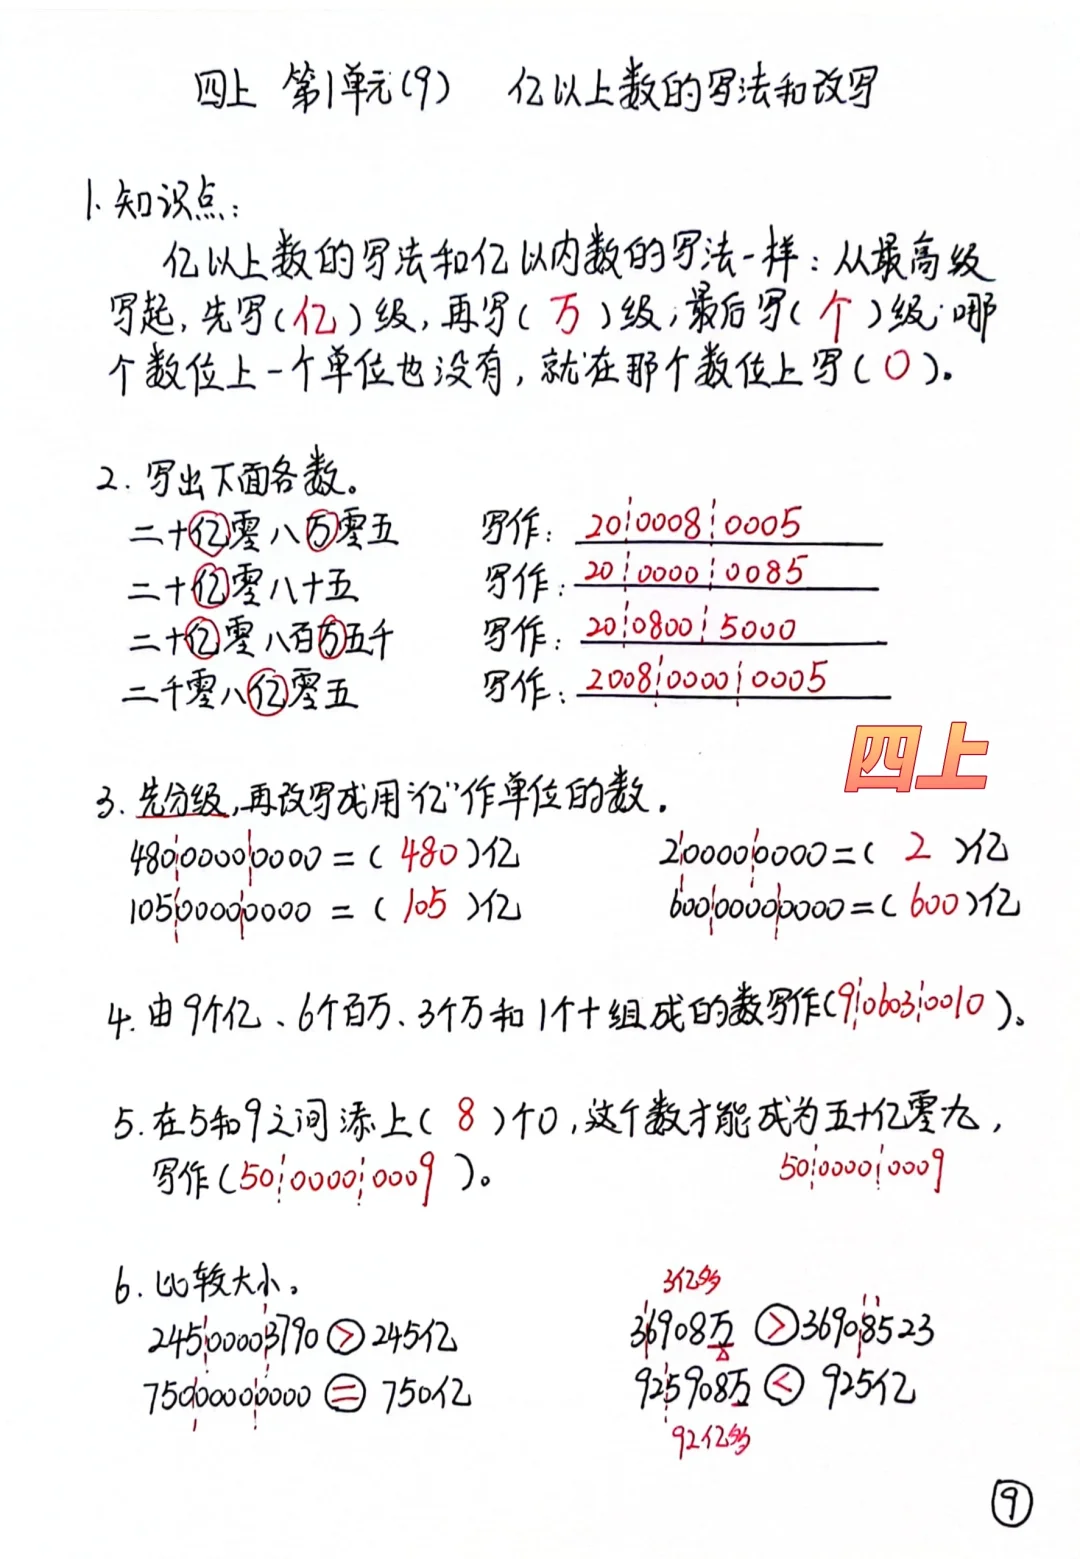 四上 第1单元(9) 亿以上数的写法和改写
1.知识点:
亿以上数的写法和亿以内数的写法一样:从最高级
写起,先写(亿)级,再写(万)级,最后写(个)级;哪
个数位上一个单位也没有,就在那个数位上写(0)。
2.写出下面各数。
二十亿零八万零五 写作: 20¦0008¦0005
二十亿零八十五 写作: 20¦0000¦0085
二十亿零八百万五千 写作: 20¦0800¦5000
二千零八亿零五 写作: 2008¦0000¦0005
四上
3.先分级,再改写成用"亿"作单位的数。
480¦0000¦0000=(480)亿 2¦0000¦0000=(2)亿
105¦0000¦0000=(105)亿 600¦0000¦0000=(600)亿
4.由9个亿、6个百万、3个万和1个十组成的数写作(9¦0603¦0010)。
5.在5和9之间添上(8)个0,这个数才能成为五十亿零九,
写作(50¦0000¦0009)。 50¦0000¦0009
6.比较大小。
3亿多
245¦0000¦3790>245亿 3¦6908万>3690¦8523
750¦0000¦0000=750亿 92¦5908万<925亿
92亿多
9